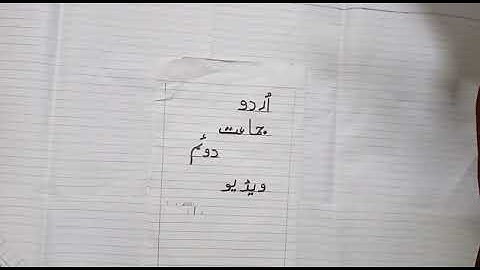 اُردو
جماعت
دوئم
ویڈیو